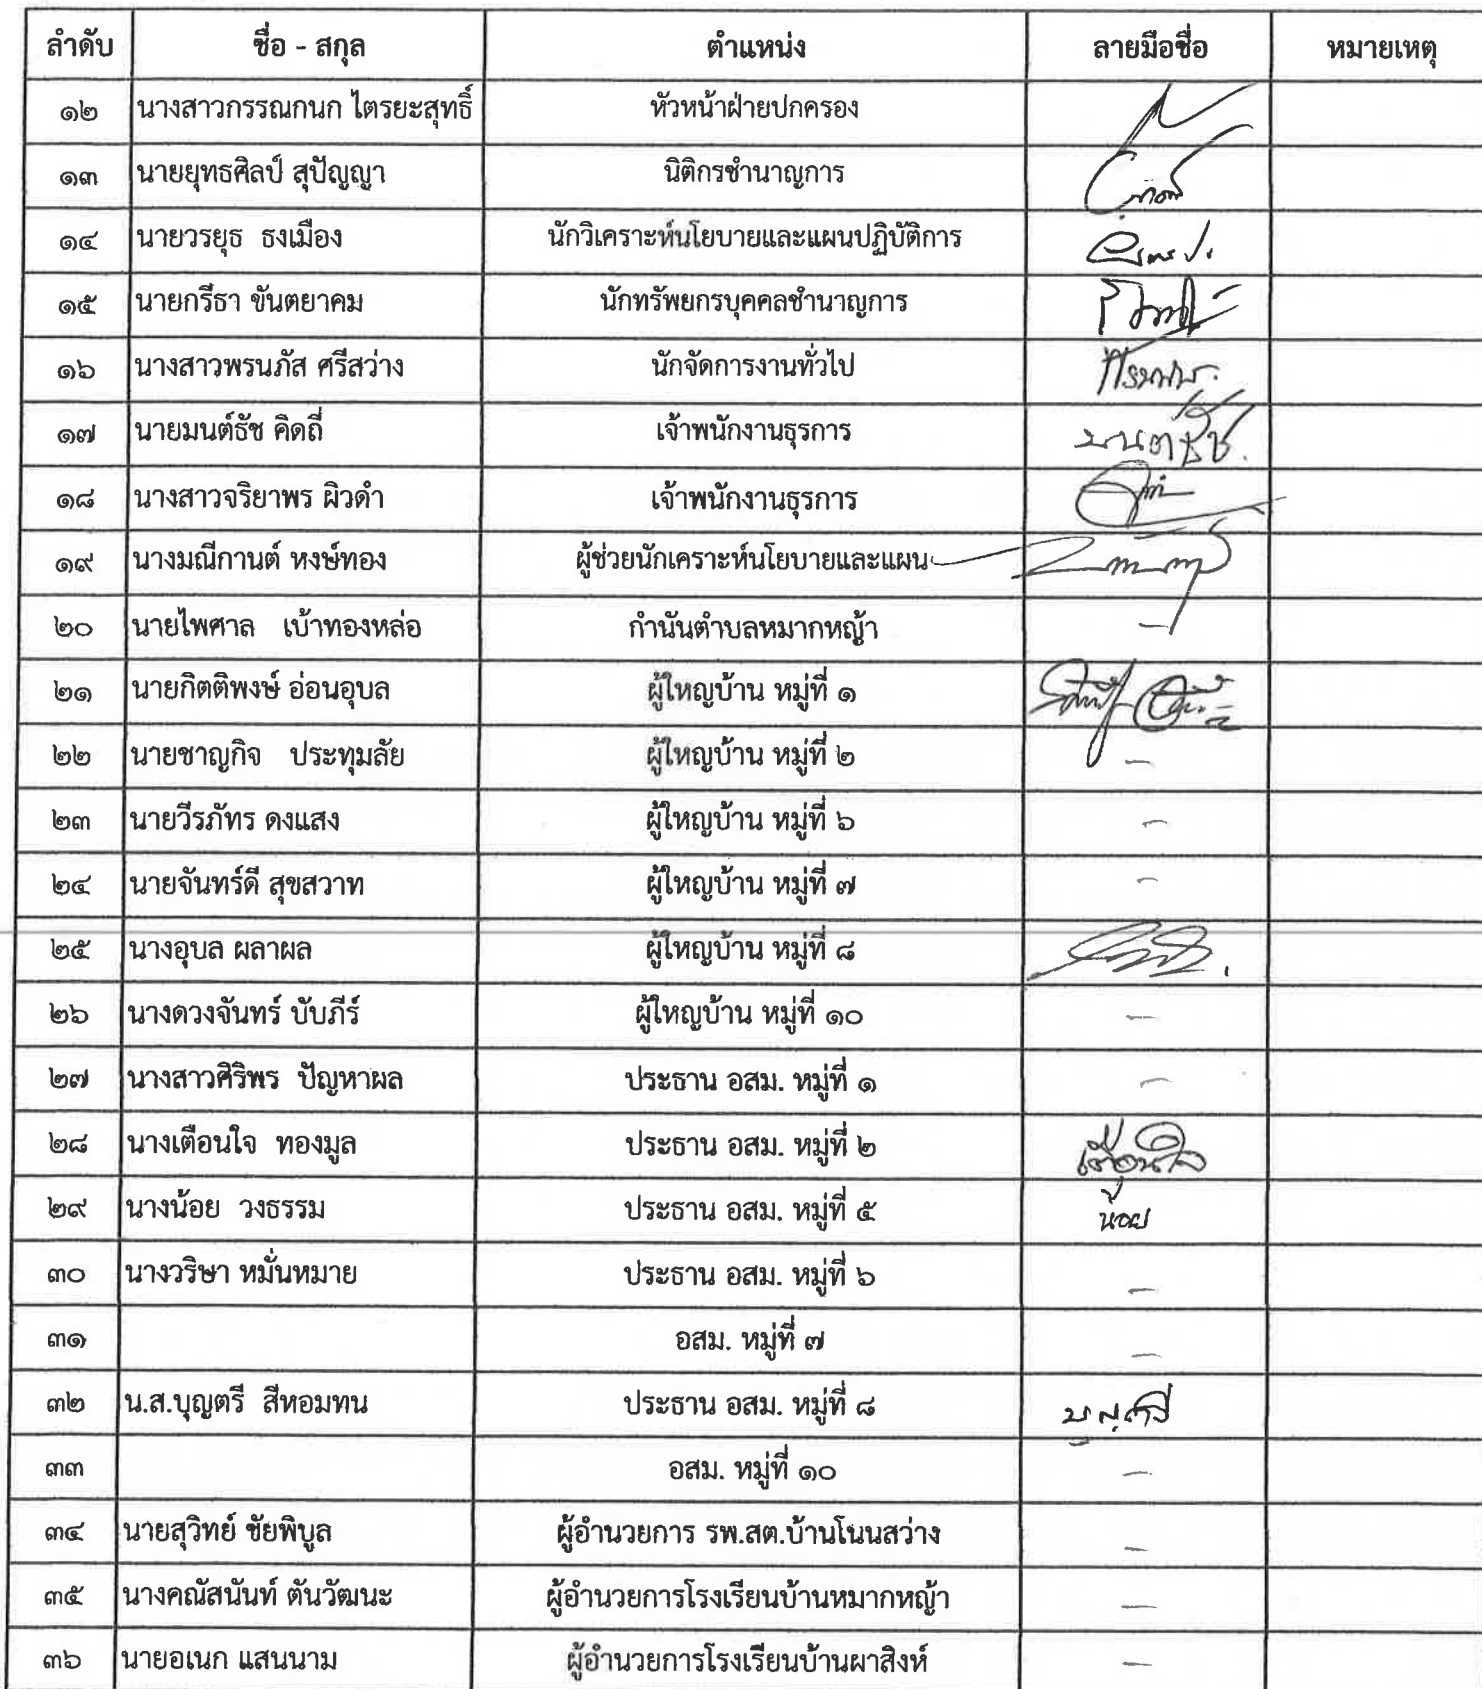 ลำดับ ชื่อ - สกุล ตำแหน่ง ลายมือชื่อ หมายเหตุ
๑๒ นางสาวกรรณกนก ไตรยะสุทธิ์ หัวหน้าฝ่ายปกครอง
๑๓ นายยุทธศิลป์ สุปัญญา นิติกรชำนาญการ
๑๔ นายวรยุธ ธงเมือง นักวิเคราะห์นโยบายและแผนปฏิบัติการ
๑๕ นายกรีธา ขันตยาคม นักทรัพยกรบุคคลชำนาญการ
๑๖ นางสาวพรนภัส ศรีสว่าง นักจัดการงานทั่วไป
๑๗ นายมนต์ธัช คิดถี่ เจ้าพนักงานธุรการ มนตธัช.
๑๘ นางสาวจริยาพร ผิวดำ เจ้าพนักงานธุรการ
๑๙ นางมณีกานต์ หงษ์ทอง ผู้ช่วยนักเคราะห์นโยบายและแผน
๒๐ นายไพศาล เบ้าทองหล่อ กำนันตำบลหมากหญ้า -
๒๑ นายกิตติพงษ์ อ่อนอุบล ผู้ใหญบ้าน หมู่ที่ ๑
๒๒ นายชาญกิจ ประทุมลัย ผู้ใหญบ้าน หมู่ที่ ๒ -
๒๓ นายวีรภัทร ดงแสง ผู้ใหญบ้าน หมู่ที่ ๖ -
๒๔ นายจันทร์ดี สุขสวาท ผู้ใหญบ้าน หมู่ที่ ๗ -
๒๕ นางอุบล ผลาผล ผู้ใหญบ้าน หมู่ที่ ๘
๒๖ นางดวงจันทร์ บับภีร์ ผู้ใหญบ้าน หมู่ที่ ๑๐ -
๒๗ นางสาวศิริพร ปัญหาผล ประธาน อสม. หมู่ที่ ๑ -
๒๘ นางเตือนใจ ทองมูล ประธาน อสม. หมู่ที่ ๒ เตือนใจ
๒๙ นางน้อย วงธรรม ประธาน อสม. หมู่ที่ ๕ น้อย
๓๐ นางวริษา หมั่นหมาย ประธาน อสม. หมู่ที่ ๖ -
๓๑ อสม. หมู่ที่ ๗ -
๓๒ น.ส.บุญตรี สีหอมทน ประธาน อสม. หมู่ที่ ๘ บุญตรี
๓๓ อสม. หมู่ที่ ๑๐ -
๓๔ นายสุวิทย์ ชัยพิบูล ผู้อำนวยการ รพ.สต.บ้านโนนสว่าง -
๓๕ นางคณัสนันท์ ตันวัฒนะ ผู้อำนวยการโรงเรียนบ้านหมากหญ้า -
๓๖ นายอเนก แสนนาม ผู้อำนวยการโรงเรียนบ้านผาสิงห์ -